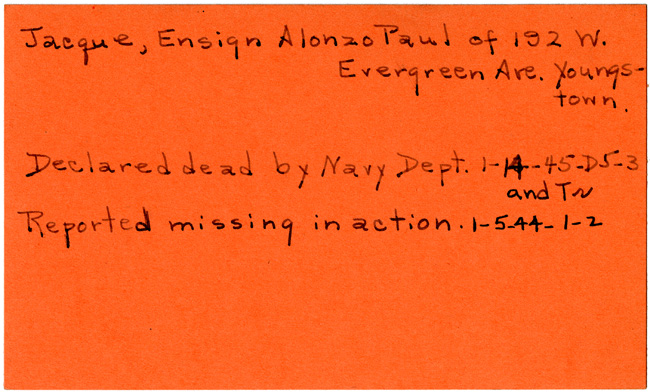 Jacque, Ensign Alonzo Paul of 192 W.
Evergreen Ave. Youngs-
town.
Declared dead by Navy Dept. 1-14-45-D5-3
and Tr
Reported missing in action. 1-5-44-1-2